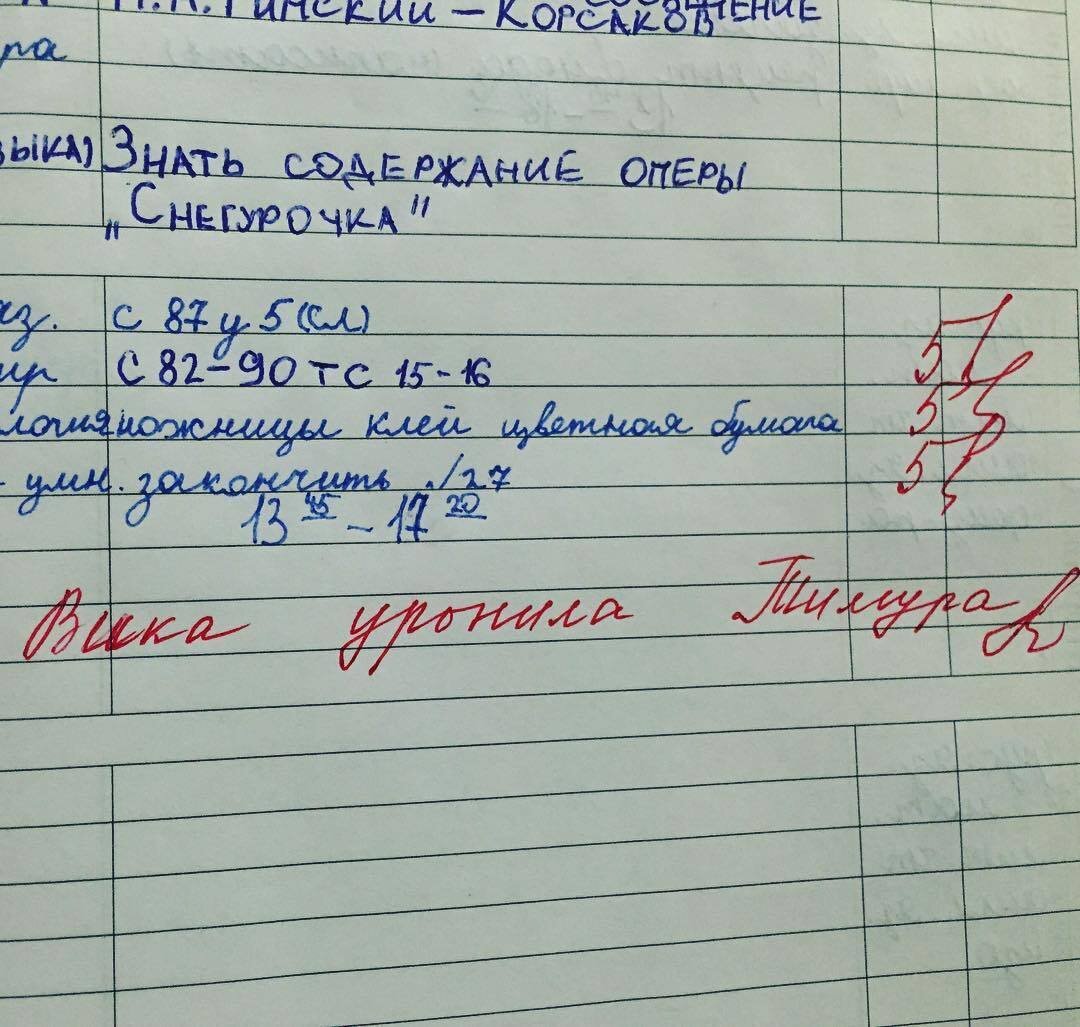 Н.А. Римский - Корсаков
ра
зыка) Знать содержание оперы
„Снегурочка"
аз. с 87 у 5 (сл) 5
ир с 82-90 т с 15-16 5
логия ножницы клей цветная бумага 5
умн. закончить /27
13 45 - 17 20
Вика уронила Тимура